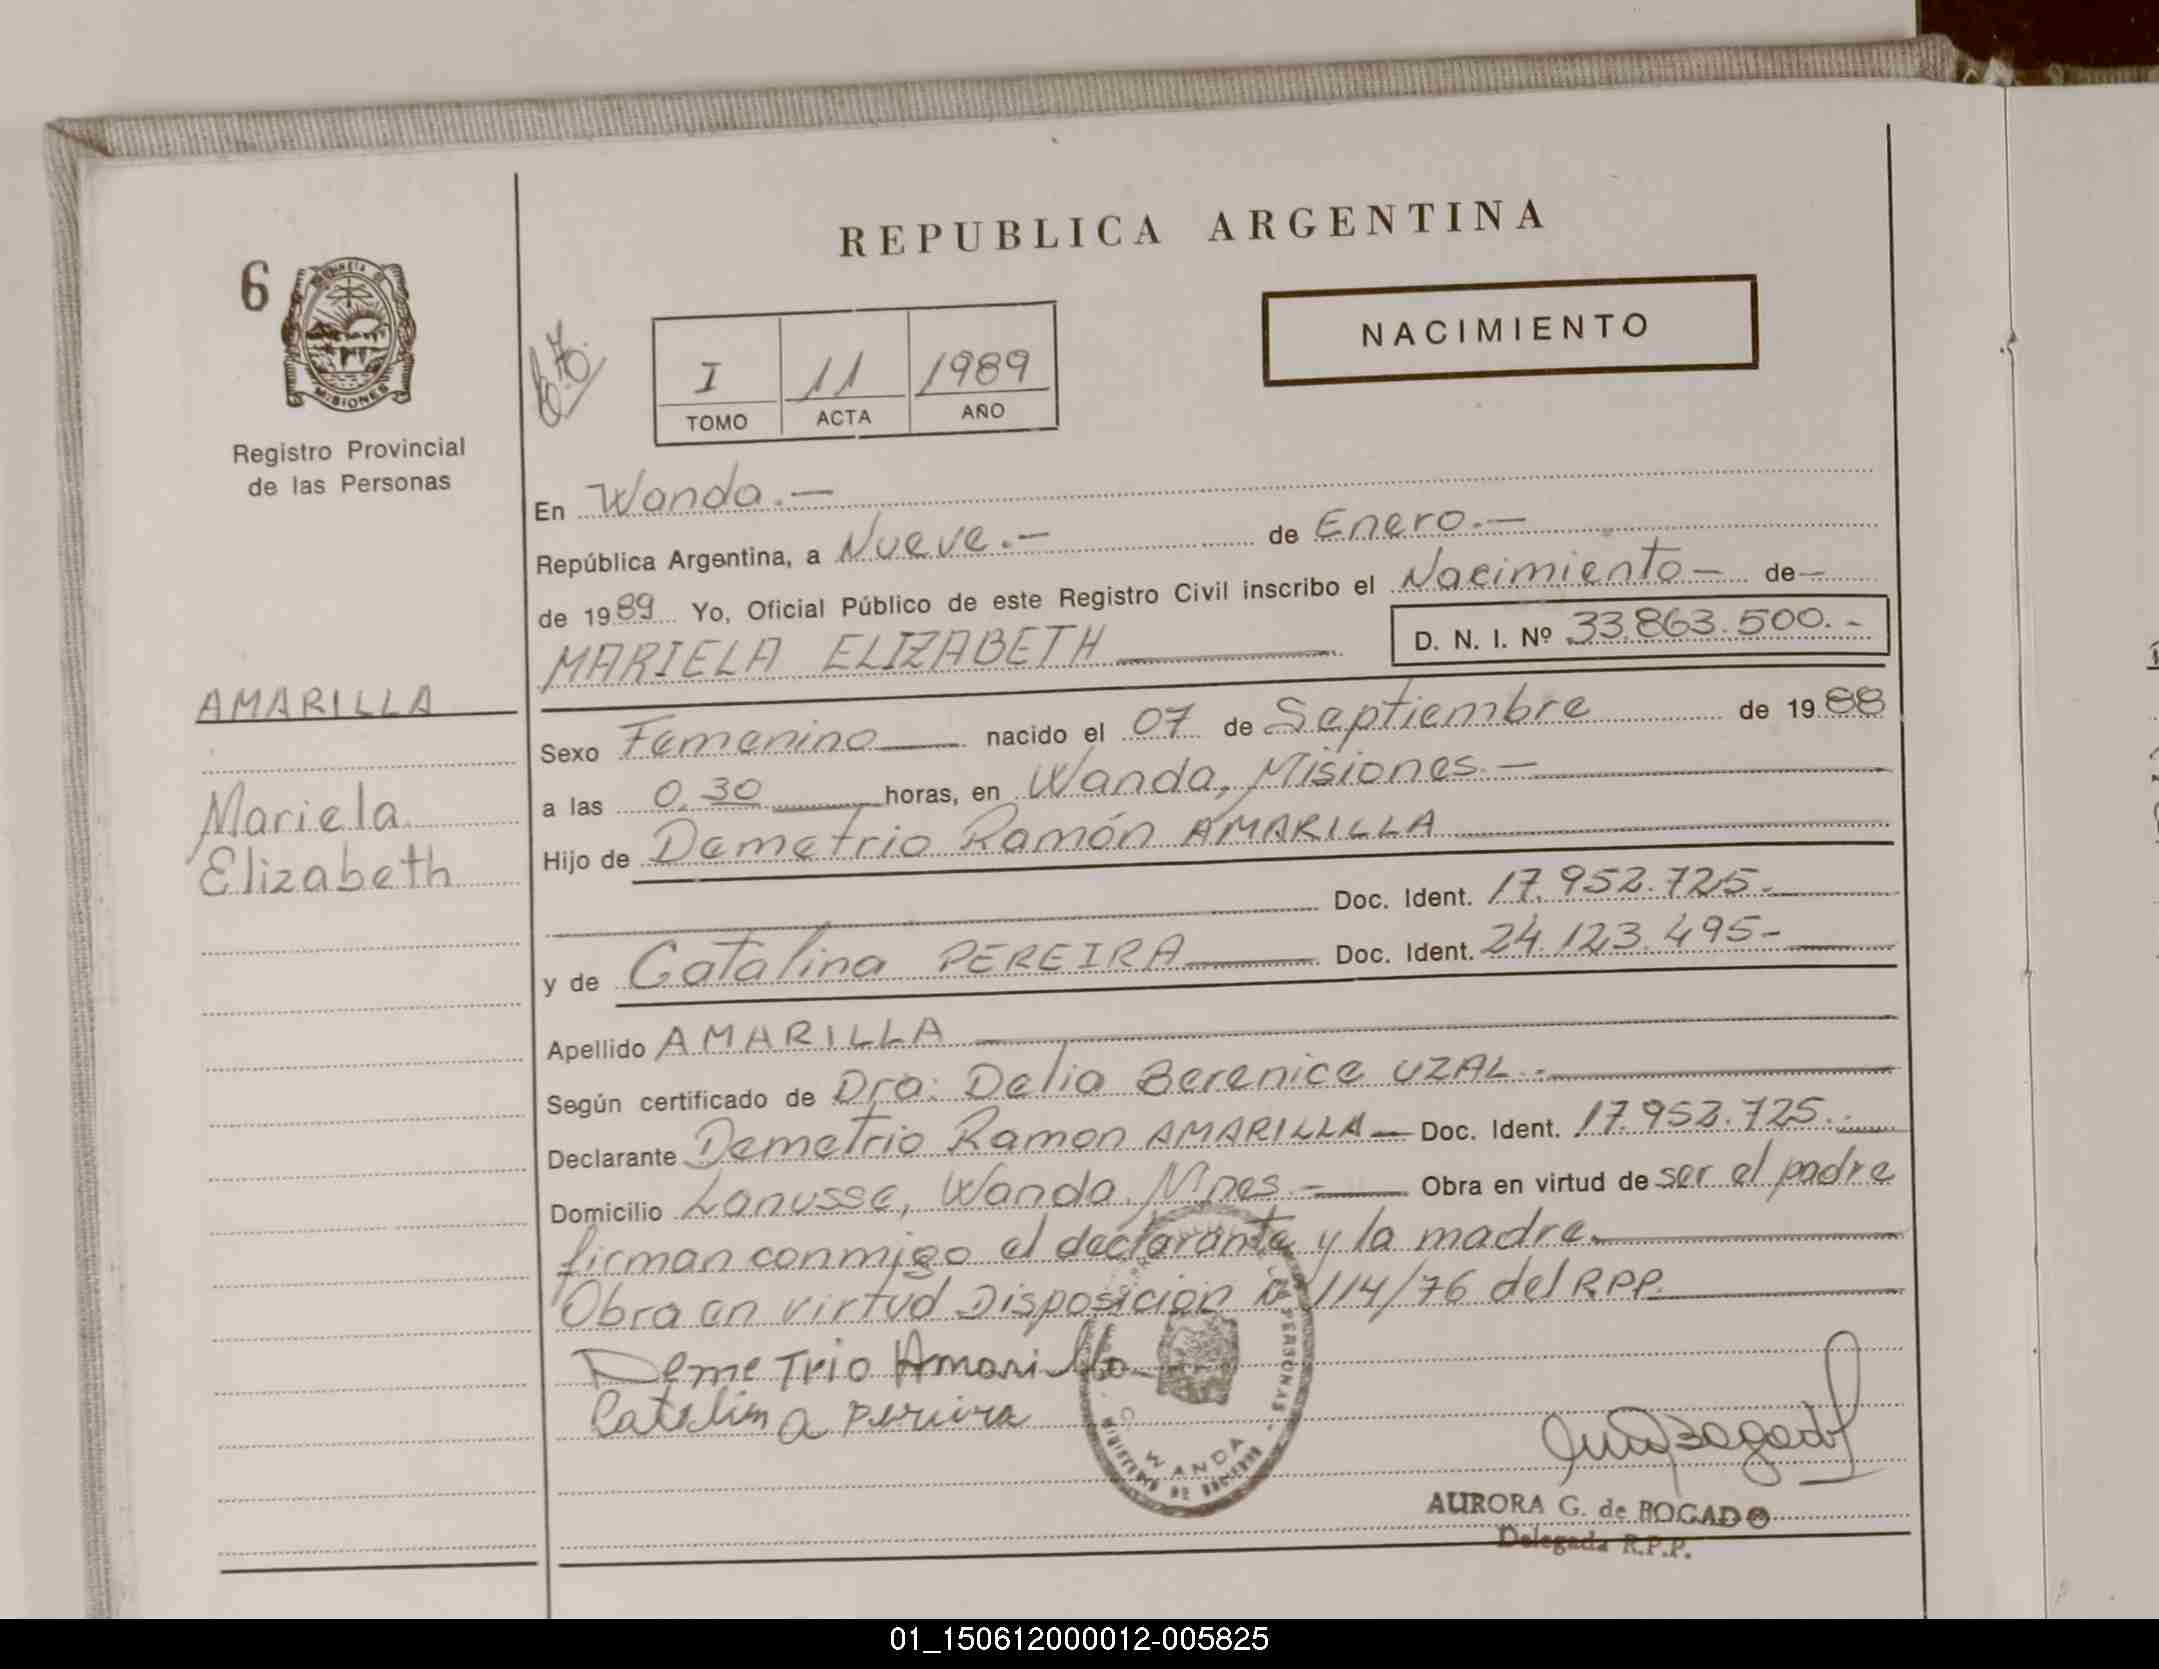 REPUBLICA ARGENTINA
6
NACIMIENTO
I 11 1989
TOMO ACTA AÑO
PROVINCIA DE
MISIONES
Registro Provincial
de las Personas
En Wanda.—
República Argentina, a Nueve.— de Enero.—
de 1989 Yo, Oficial Público de este Registro Civil inscribo el Nacimiento— de—
MARIELA ELIZABETH D. N. I. Nº 33.863.500.-
AMARILLA
Mariela
Elizabeth
Sexo Femenino nacido el 07 de Septiembre de 1988
a las 0.30 horas, en Wanda, Misiones.—
Hijo de Demetrio Ramón AMARILLA
Doc. Ident. 17.952.725.-
y de Catalina PEREIRA Doc. Ident. 24.123.495-
Apellido AMARILLA
Según certificado de Dra: Delia Berenice UZAL.-
Declarante Demetrio Ramon AMARILLA— Doc. Ident. 17.952.725.-
Domicilio Lanusse, Wanda, Mnes.- Obra en virtud de ser el padre
firman conmigo el declarante y la madre.
Obra en virtud Disposición Nº 114/76 del RPP.
Demetrio Amarilla
Catalina Pereira
PERSONAS
WANDA
MINISTERIO DE GOBIERNO
AURORA G. de BOGADO
Delegada R.P.P.
01_150612000012-005825